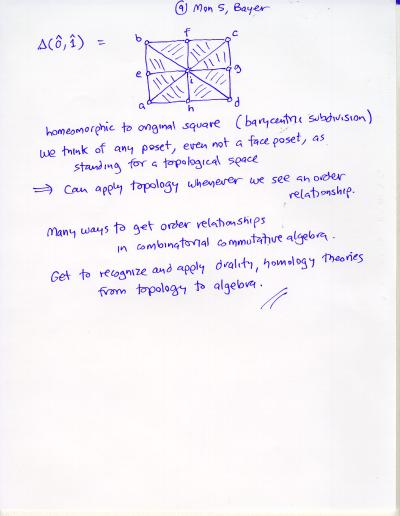 ⑨ Mon 5, Bayer
Δ(0̂,1̂) =
b f c
e i g
a h d
homeomorphic to original square (barycentric subdivision)
We think of any poset, even not a face poset, as
standing for a topological space
⟹ Can apply topology whenever we see an order
relationship.
Many ways to get order relationships
in combinatorial commutative algebra.
Get to recognize and apply duality, homology theories
from topology to algebra.